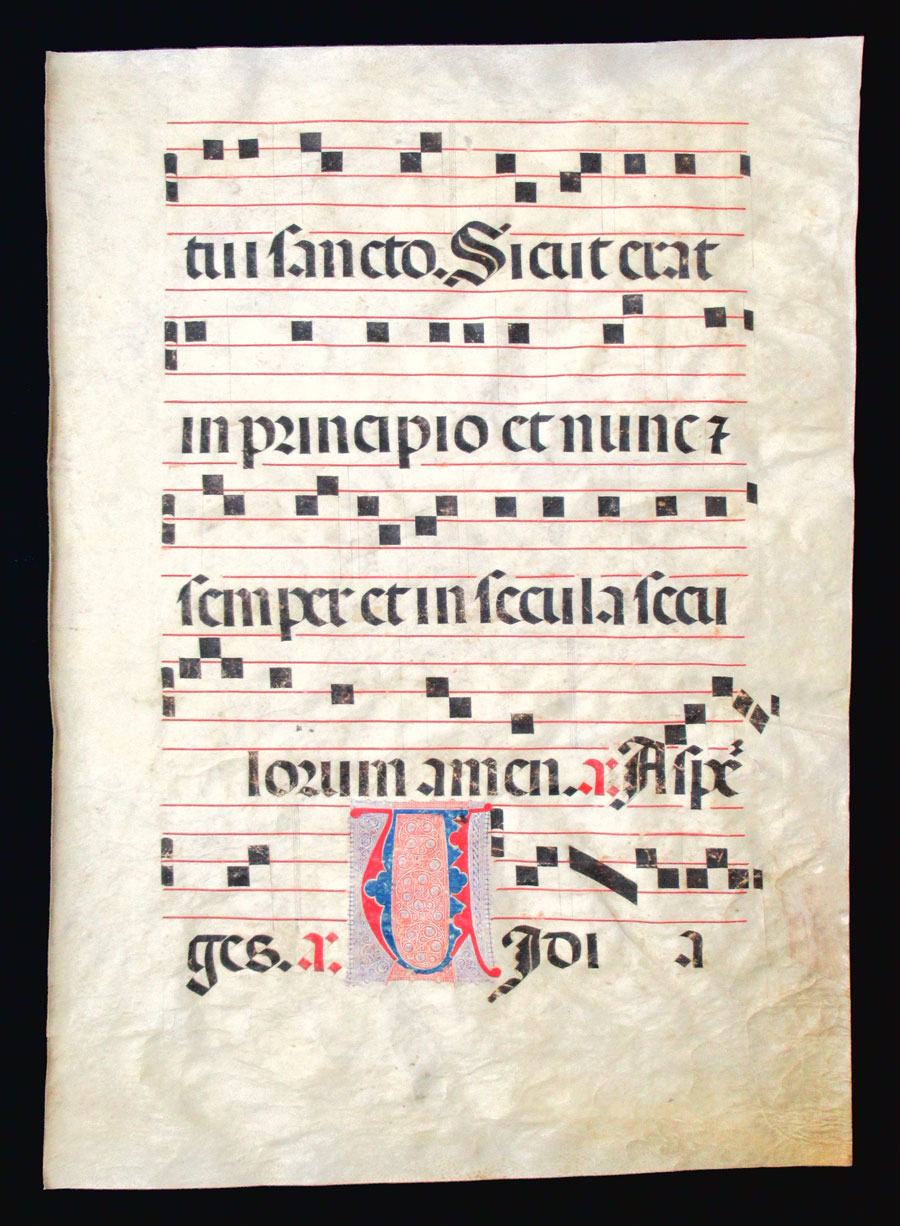 tui sancto. Sicut erat
in principio et nunc ⁊
semper et in secula secu
lorum amen. a: Aspe
ges. a: VIdi a